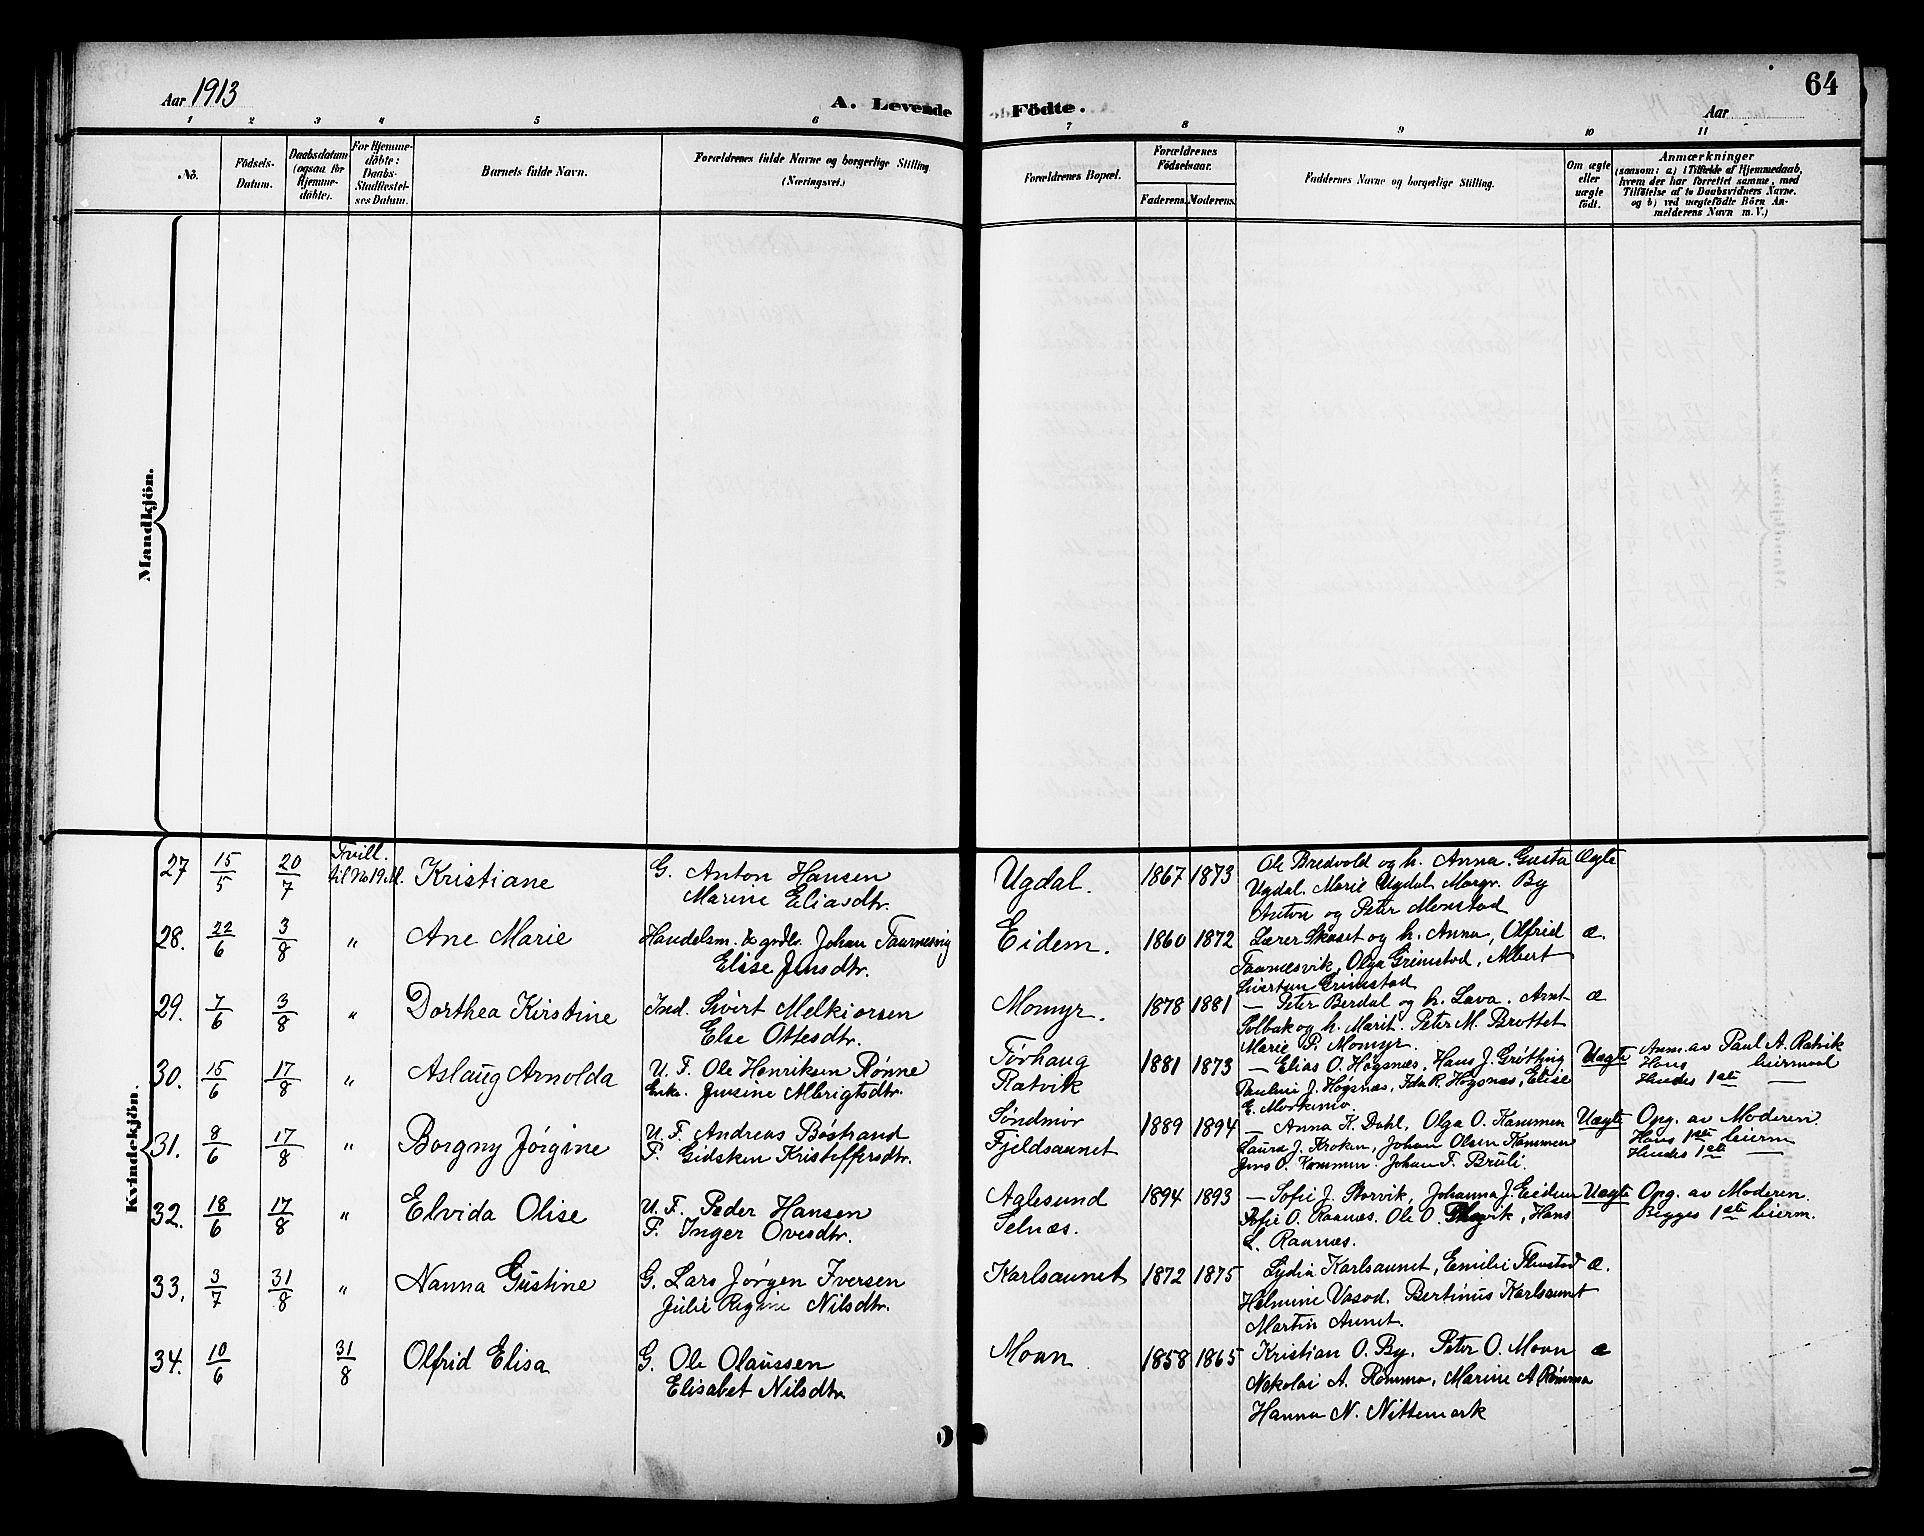 Aar 1913
A. Levende Födte.
Aar
64
1 2 3 4 5 6 7 8 9 10 11
No.
Födsels-Datum.
Daabsdatum (ogsaa for Hjemmedöbte).
For Hjemmedöbte: Daabs-Stadfæstelses Datum.
Barnets fulde Navn.
Forældrenes fulde Navne og borgerlige Stilling (Næringsvei.)
Forældrenes Bopæl.
Forældrenes Födselsaar.
Faderens. Moderens.
Faddernes Navne og borgerlige Stilling.
Om ægte eller uægte födt.
Anmærkninger
(saasom: a) i Tilfælde af Hjemmedaab,
hvem der har forrettet samme, med
Tilföielse af to Daabsvidners Navne.
og b) ved uægtefödte Börn An-
melderens Navn m. V.)
Mandkjön.
Kvindekjön.
27 15/5 20/7 Tvill. til No 19 M. Kristiane G. Anton Hansen Ugdal. 1867 1873 Ole Bredvold og h. Anna. Gusta Ægte
Marine Eliasdtr. Ugdal. Marie Ugdal. Margr. By
Anton og Peter Monstad
28. 22/6 3/8 " Ane Marie Handelsm. & grdbr. Johan Taarnesvig Eidem. 1860 1872 Lærer Skaset og h. Anna, Olfrid æ.
Elise Jensdtr. Taarnesvik, Olga Grimstad, Albert
Grimstad
29. 7/6 3/8 " Dorthea Kirstine Ind. Sivert Melkiorsen Momyr. 1878 1881 – Peter Berdal og h. Lava. Arnt æ
Else Ottesdtr. Solbak og h. Marit. Peter M. Brottet
Marie P. Momyr.
30. 15/6 17/8 " Aslaug Arnolda U. F. Ole Henriksen Rønne Tørhaug 1881 1873 – Elias O. Høgsnæs, Hans J. Grøtting Uægte Anm. av Paul A. Ratvik
Enke. Jensine Albrigtsdtr. Ratvik Pauline J. Høgsnæs, Ida R. Høgsnæs, Elise Hans leiermaal
E. Morkemo Hendes 1ste —
31. 8/6 17/8 " Borgny Jørgine U. F. Andreas Bøstrand Søndmør 1889 1894 – Anna K. Dahl, Olga O. Hammen Uægte Opg. av Moderen.
P. Gidsken Kristoffersdtr. Fjeldsaunet Laura J. Kroken, Johan Olsen Hammen Hans 1ste leierm
Jens O. Hammen. Johan F. Brüli. Hendes 1ste —
32. 18/6 17/8 " Elvida Olise U. F. Peder Hansen Aglesund 1894 1893 – Sofie J. Storvik, Johanna J. Eidem Uægte Opg. av Moderen.
P. Inger Ovesdtr. Selnæs. Sofie O. Raanæs. Ole O. Hans Begges 1ste leierm.
L. Raanæs.
33. 3/7 31/8 " Nanna Gustine G. Lars Jørgen Iversen Karlsaunet 1872 1875 Lydia Karlsaunet, Emilie æ.
Julie Regine Nilsdtr. Helmine Vasod. Bertinus Karlsaunet
Martin Aunet.
34. 10/6 31/8 Olfrid Elisa G. Ole Olaussen Moan 1858 1865 Kristian O. By. Peter O. Moan æ
Elisabet Nilsdtr Nekolai A. Rømma, Marine A Rømma
Hanna N. Nittemark